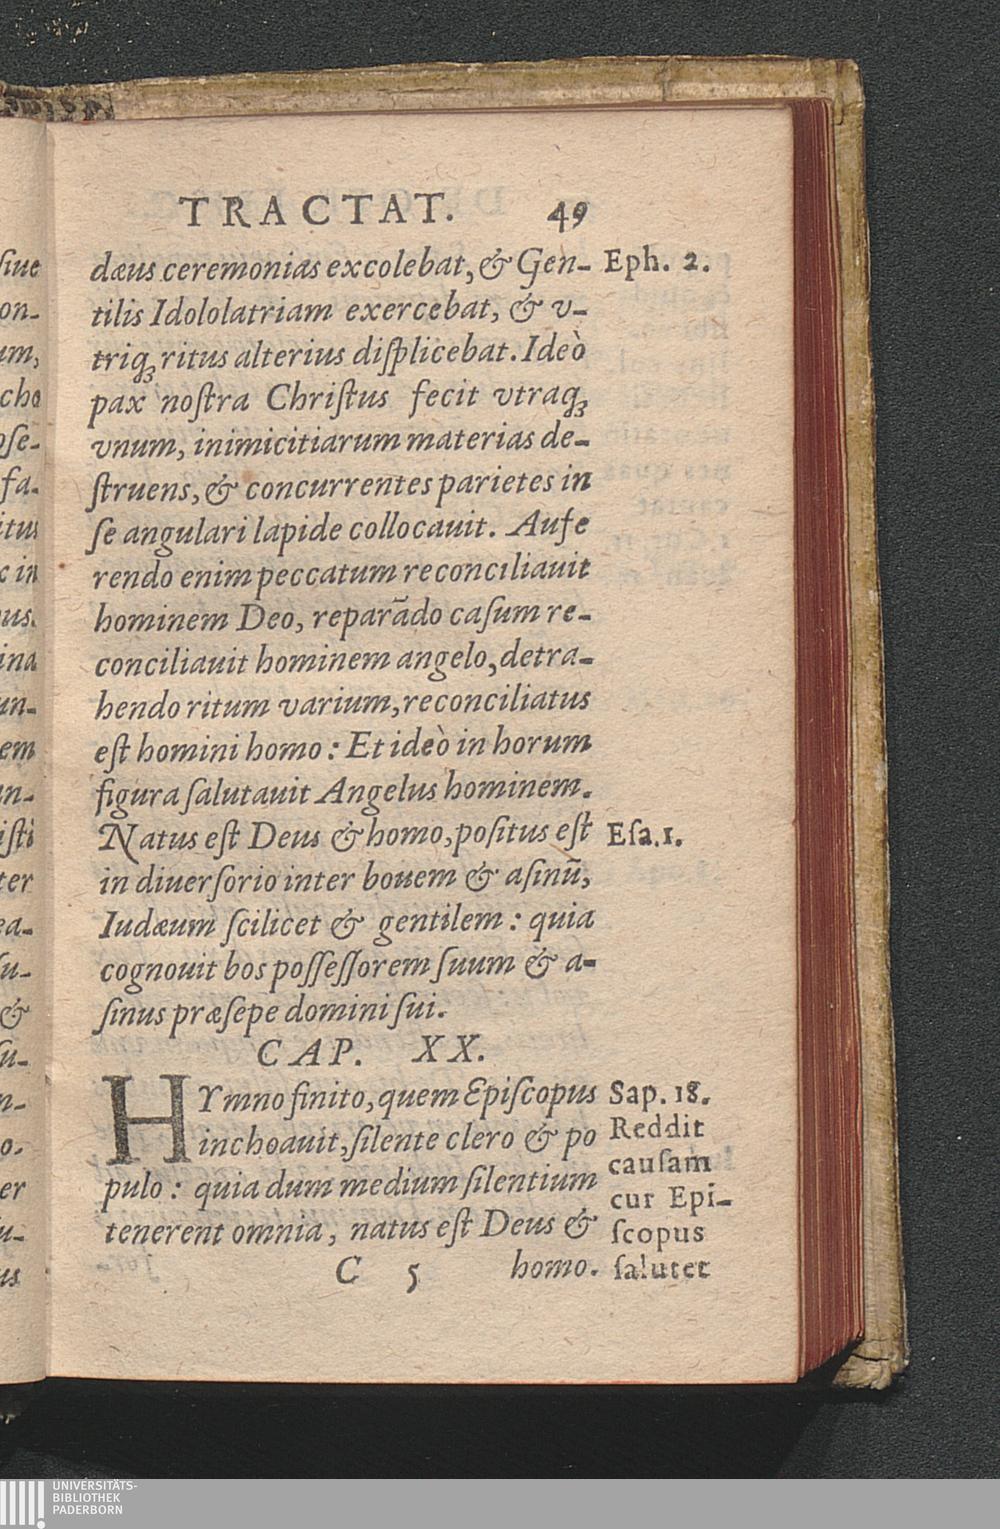 TRACTAT. 49
dæus ceremonias excolebat, & Gen-
tilis Idololatriam exercebat, & v-
triq; ritus alterius diſplicebat. Ideò
pax noſtra Chriſtus fecit vtraq;
vnum, inimicitiarum materias de-
ſtruens, & concurrentes parietes in
ſe angulari lapide collocauit. Aufe
rendo enim peccatum reconciliauit
hominem Deo, reparādo caſum re-
conciliauit hominem angelo, detra-
hendo ritum varium, reconciliatus
eſt homini homo : Et ideò in horum
figura ſalutauit Angelus hominem.
Natus eſt Deus & homo, poſitus eſt
in diuerſorio inter bouem & aſinū,
Iudæum ſcilicet & gentilem : quia
cognouit bos poſſeſſorem ſuum & a-
ſinus præſepe domini ſui.
CAP. XX.
HYmno finito, quem Epiſcopus
inchoauit, ſilente clero & po
pulo : quia dum medium ſilentium
tenerent omnia, natus eſt Deus &
C 5 homo.
Eph. 2.
Eſa. 1.
Sap. 18.
Reddit
cauſam
cur Epi-
ſcopus
ſalutet
ſiue
on-
um,
cho
oſe-
fa-
itus
c in
ina
un-
em
in-
iſti
ter
ea-
ſu-
&
ſu-
n-
o.
er
u-
us
UNIVERSITÄTS-
BIBLIOTHEK
PADERBORN